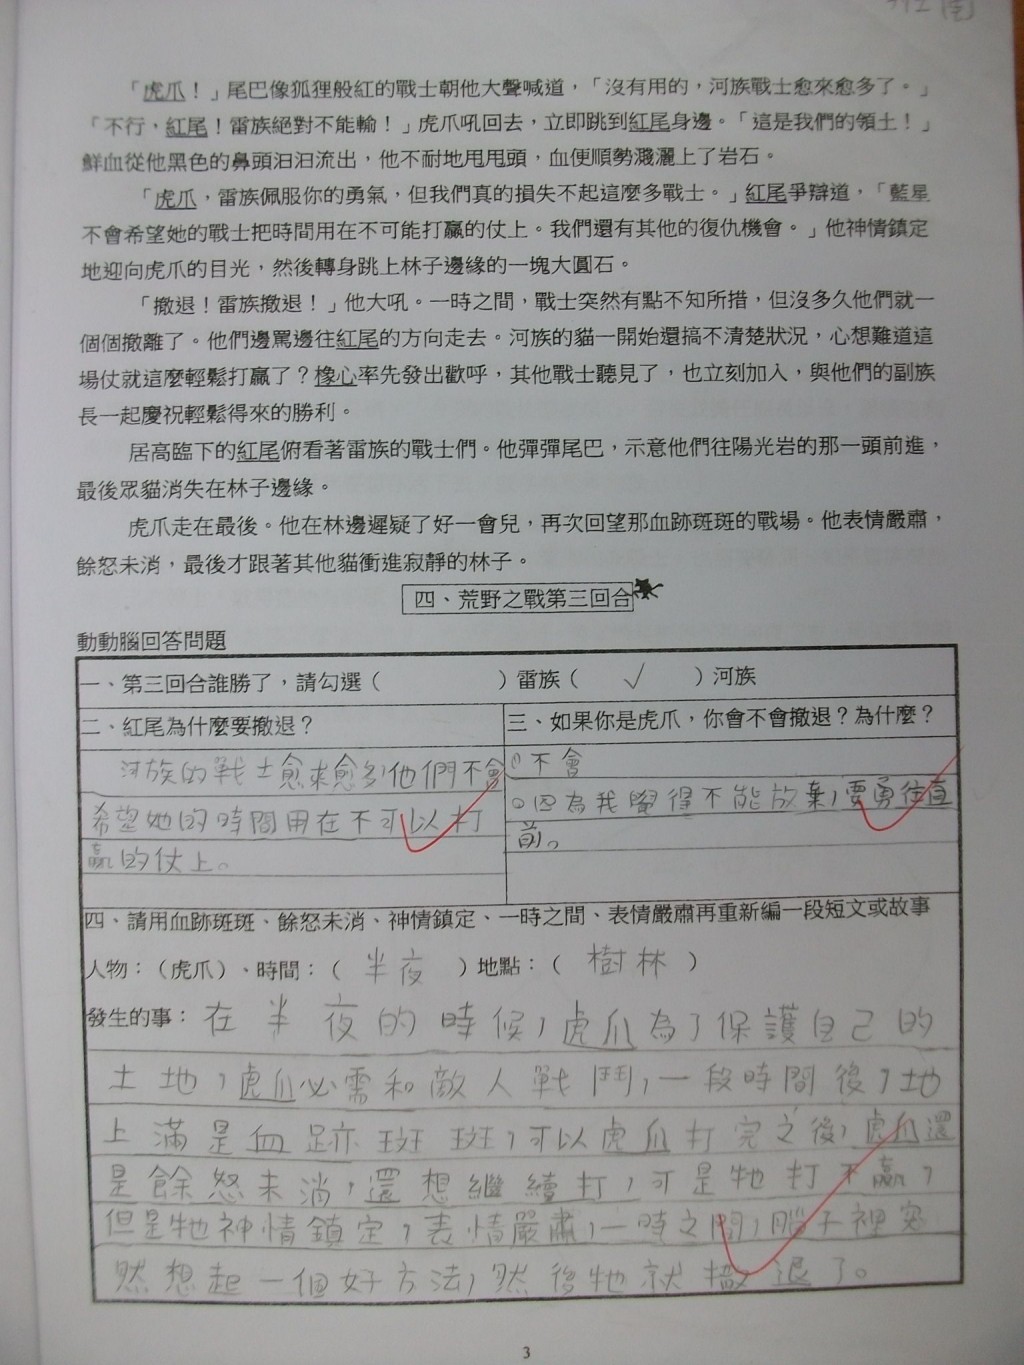 「虎爪！」尾巴像狐狸般紅的戰士朝他大聲喊道，「沒有用的，河族戰士愈來愈多了。」
「不行，紅尾！雷族絕對不能輸！」虎爪吼回去，立即跳到紅尾身邊。「這是我們的領土！」
鮮血從他黑色的鼻頭汩汩流出，他不耐地甩甩頭，血便順勢濺灑上了岩石。
「虎爪，雷族佩服你的勇氣，但我們真的損失不起這麼多戰士。」紅尾爭辯道，「藍星
不會希望她的戰士把時間用在不可能打贏的仗上。我們還有其他的復仇機會。」他神情鎮定
地迎向虎爪的目光，然後轉身跳上林子邊緣的一塊大圓石。
「撤退！雷族撤退！」他大吼。一時之間，戰士突然有點不知所措，但沒多久他們就一
個個撤離了。他們邊罵邊往紅尾的方向走去。河族的貓一開始還搞不清楚狀況，心想難道這
場仗就這麼輕鬆打贏了？橡心率先發出歡呼，其他戰士聽見了，也立刻加入，與他們的副族
長一起慶祝輕鬆得來的勝利。
居高臨下的紅尾俯看著雷族的戰士們。他彈彈尾巴，示意他們往陽光岩的那一頭前進，
最後眾貓消失在林子邊緣。
虎爪走在最後。他在林邊遲疑了好一會兒，再次回望那血跡斑斑的戰場。他表情嚴肅，
餘怒未消，最後才跟著其他貓衝進寂靜的林子。
四、荒野之戰第三回合
動動腦回答問題
一、第三回合誰勝了，請勾選（ ）雷族（ √ ）河族
二、紅尾為什麼要撤退？
河族的戰士愈來愈多,他們不會
希望她的時間用在不可以打
贏的仗上。
三、如果你是虎爪，你會不會撤退？為什麼？
不會
因為我覺得不能放棄,要勇往直
前。
四、請用血跡斑斑、餘怒未消、神情鎮定、一時之間、表情嚴肅再重新編一段短文或故事
人物：（虎爪）、時間：（ 半夜 ）地點：（ 樹林 ）
發生的事：在半夜的時候,虎爪為了保護自己的
土地,虎爪必需和敵人戰鬥,一段時間後,地
上滿是血跡斑斑,可以虎爪打完之後,虎爪還
是餘怒未消,還想繼續打,可是牠打不贏,
但是牠神情鎮定,表情嚴肅,一時之間,腦子裡突
然想起一個好方法,然後牠就撤退了。
3